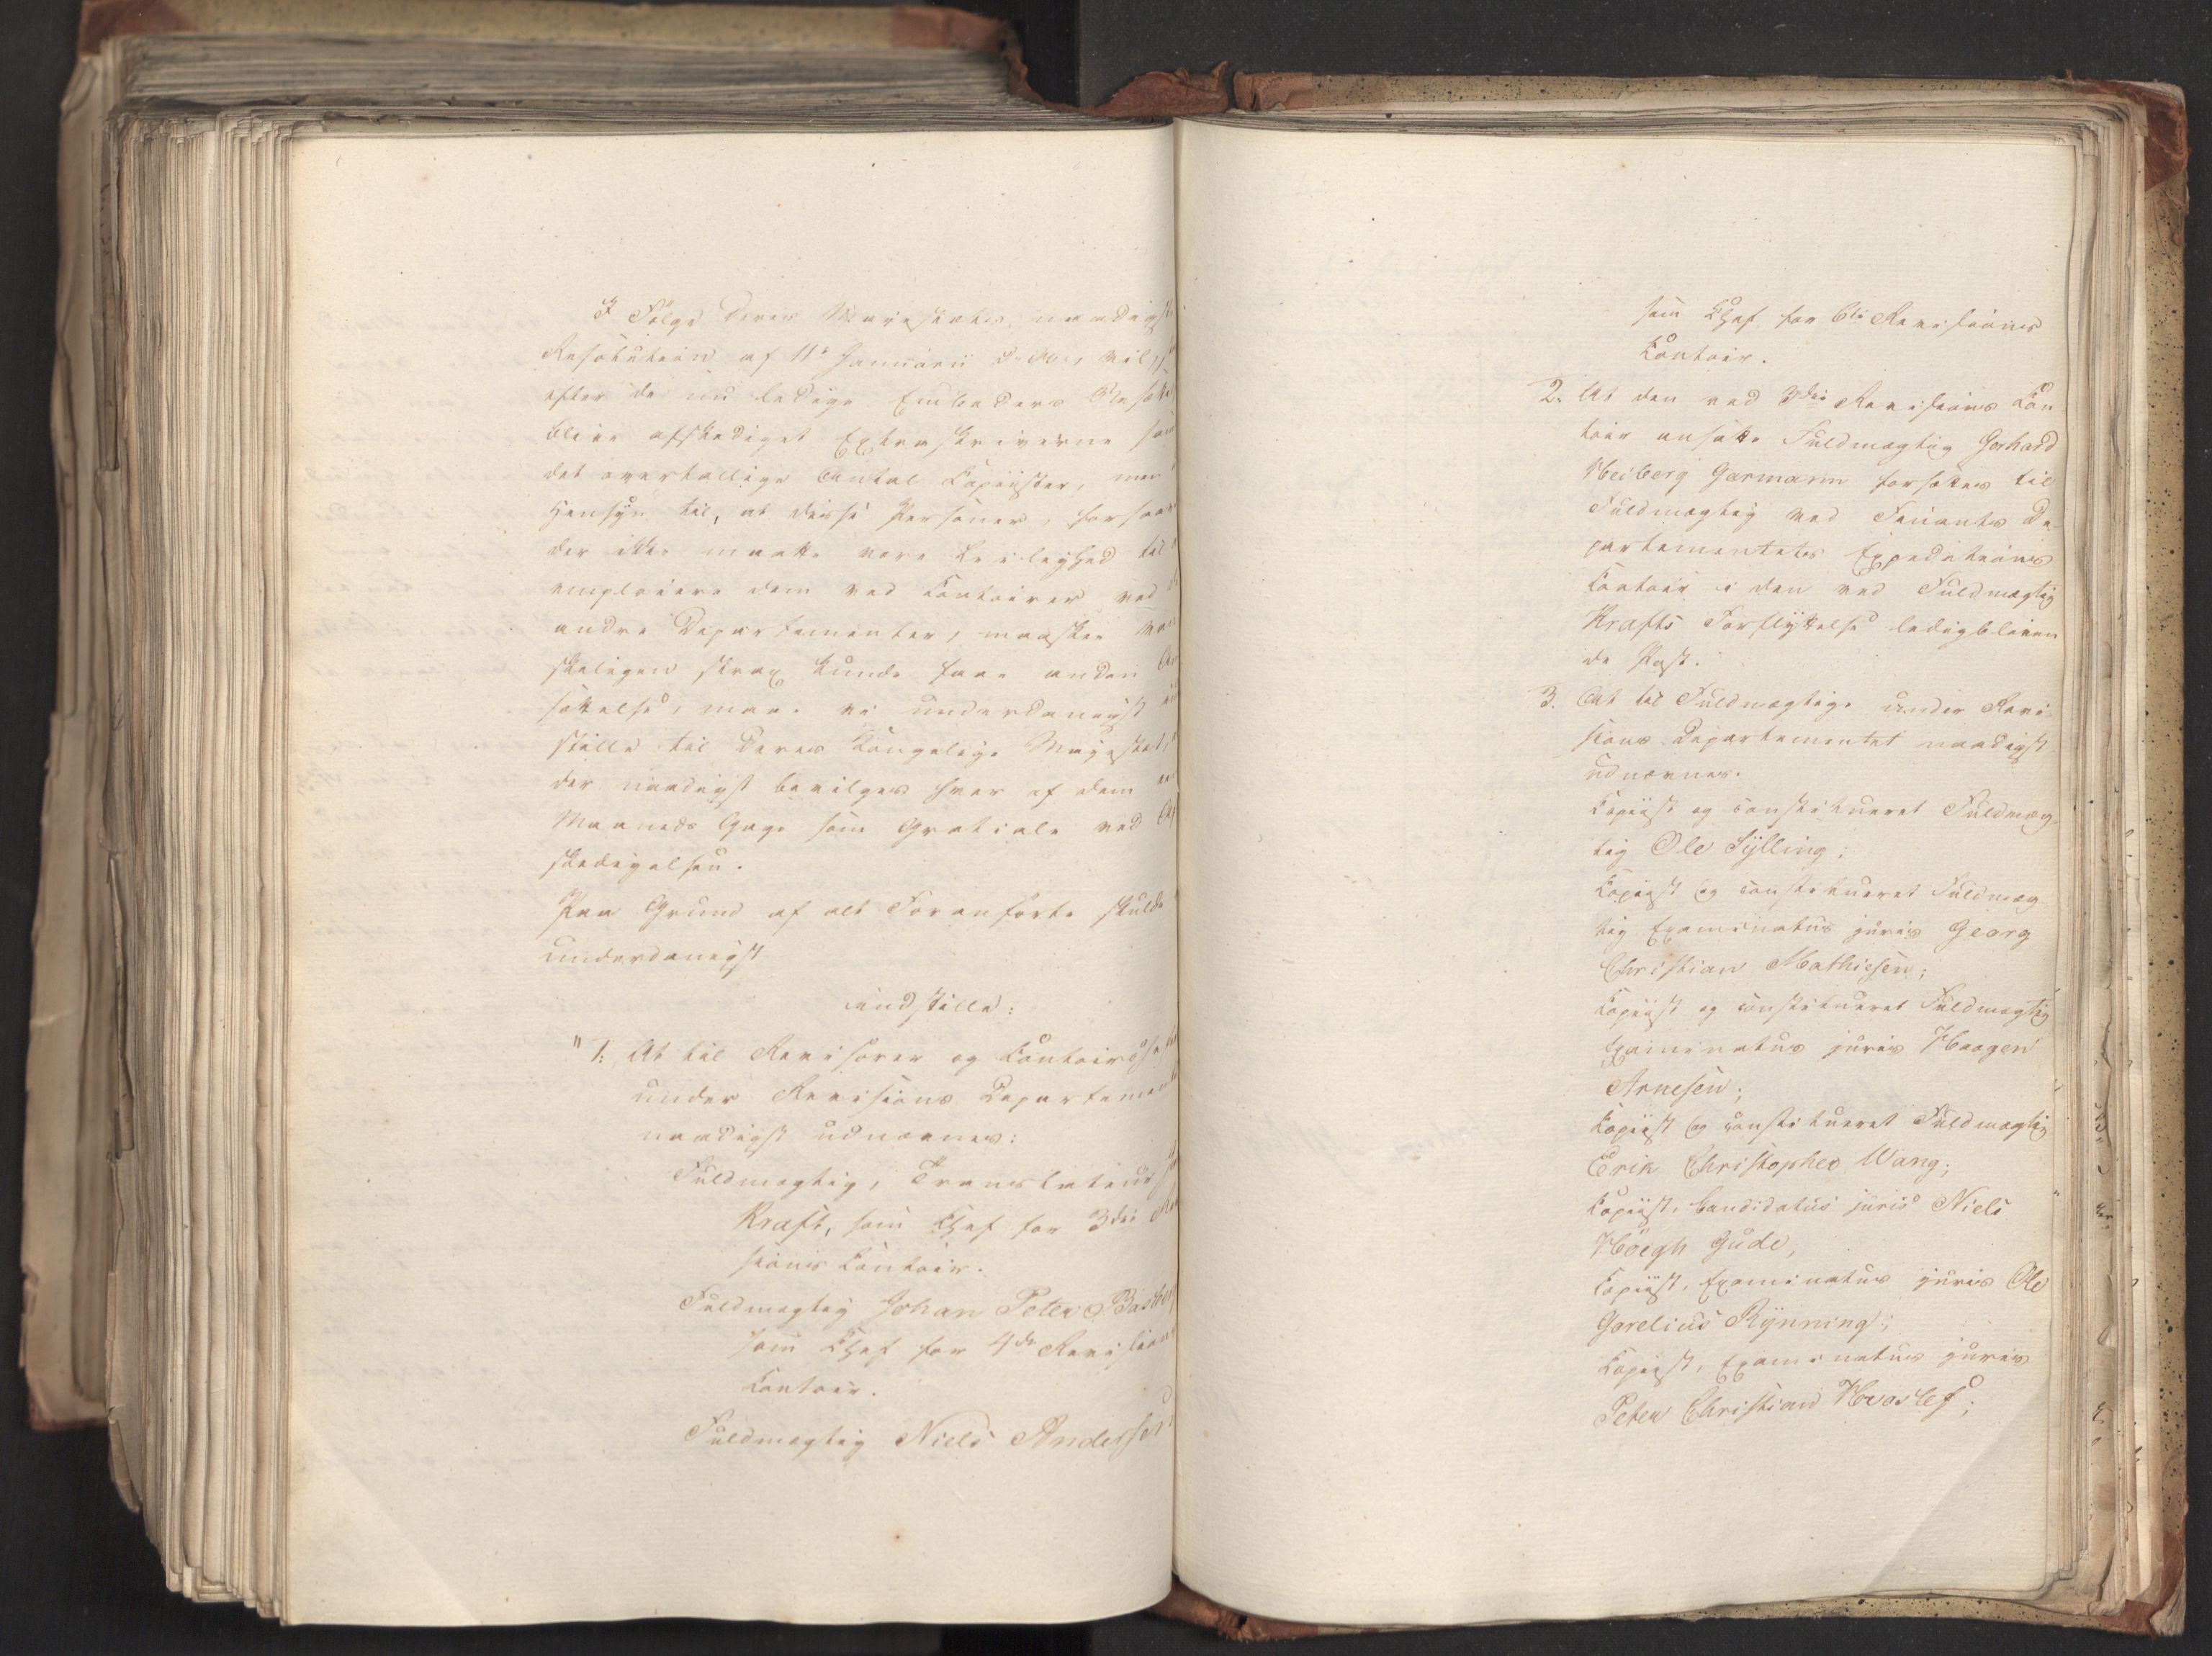 I Følge Deres Majestæts naadigste
Resolution af 11te Januarii d. A., vil,
efter de nu ledige Embeders Besæt
blive afskediget Extraskriverne som
det overtallige Antal Kopiister, men i
Hensyn til, at disse Personer, forsaa
der ikke maatte være Leilighed til
emploiere dem ved Kontoirer ved
andre Departementer, maaskee van
skeligen strax kunde faae anden An
sættelse, maae vi underdanigst
stille til Deres Kongelige Majestæt,
der naadigst bevilges hver af dem
Maaneds Gage som Gratiale ved Af
skedigelsen.
Paa Grund af alt Foranførte skulde
underdanigst
indstille:
"1. At til Revisorer og Kontoirchefer
under Revisions Departementet
naadigst udnævnes:
Fuldmægtig, Translateur
Kraft, som Chef for 3die Revi
sions Kontoir.
Fuldmægtig Johan Peter
som Chef for 4de Revisions
Kontoir.
Fuldmægtig Niels Andersen
som Chef for 6te Revisions
Kontoir.
2. At den ved 3die Revisions Kon
toir ansatte Fuldmægtig Gerhard
Heiberg Garmann forsættes til
Fuldmægtig ved Finants De
partementets Expeditions
Kontoir i den ved Fuldmægtig
Krafts Forflyttelse ledigbleven
de Post.
3. At til Fuldmægtige under Revi
sions Departementet naadigst
udnævnes.
Kopiist og constitueret Fuldmæg
tig Ole Sylling;
Kopiist og constitueret Fuldmæg
tig Examinatus juris Georg
Christian Mathiesen;
Kopiist og constitueret Fuldmægtig
Examinatus juris Haagen
Arnesen;
Kopiist og constitueret Fuldmægtig
Erik Christopher Wang;
Kopiist, Candidatus juris Niels
Høegh Gude,
Kopiist, Examinatus juris Ole
Gorelius Rynning;
Kopiist, Examinatus juris
Peter Christian Hvoslef;